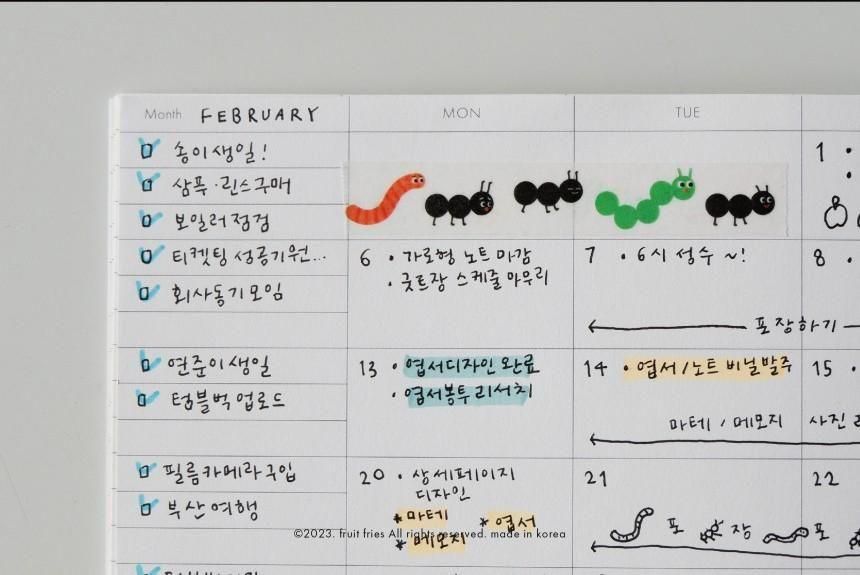 Month FEBRUARY MON TUE
송이생일!
삼푸·린스구매
보일러점검
티켓팅 성공기원...
회사동기모임
연준이생일
텀블벅 업로드
필름카메라구입
부산여행
1 •
6 • 가로형 노트 마감
• 굿트장 스케줄 마무리
7 • 6시 성수 ~!
8 •
포장하기
13 • 엽서디자인 완료
• 엽서봉투 리서치
14 • 엽서/노트 비닐발주
15 •
마테 / 메모지 사진
20 • 상세페이지
디자인
*마테
*엽서
*메모지
21
22
포 장 포
©2023. fruit fries All rights reserved. made in korea